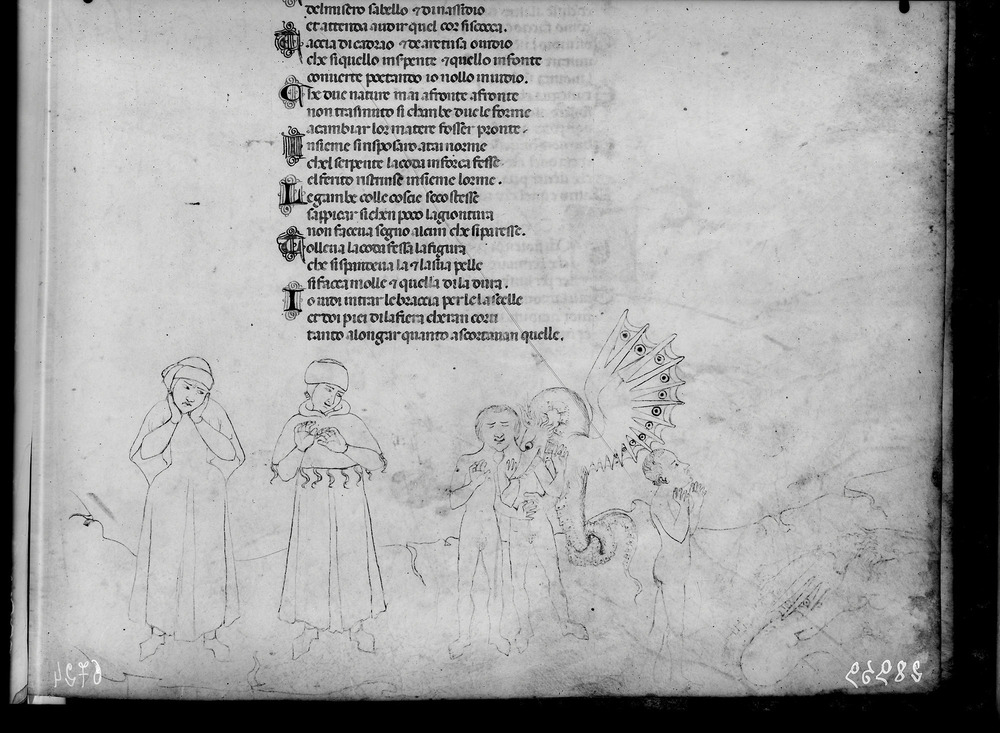 delmisero sabello ⁊ di nassidio
et attenda audir quel cor siscocca.
Taccia di cadmo ⁊ de aretusa ouidio
che si quello inspente ⁊ quello infonte
conuerte poetando io nollo inuidio.
Che due nature mai afronte afronte
non trasmuto si chambe due le forme
acambiar lor matere fosser pronte.
Insieme sirisposaro atai norme
chel serpente la coda inforca fesse
el ferito ristrinse insieme lorme.
Legambe colle coscie seco stesse
sappicar si chen poco la giontura
non faccua segno alcun che si paresse.
Tolleua la coda fessa la figura
che si sperdeua la ⁊ la sua pelle
si facea molle ⁊ quella di la dura.
Io uidi intrar le braccia per le lascelle
et doi piei dila fiera cheran corti
tanto alongar quanto ascortauan quelle.